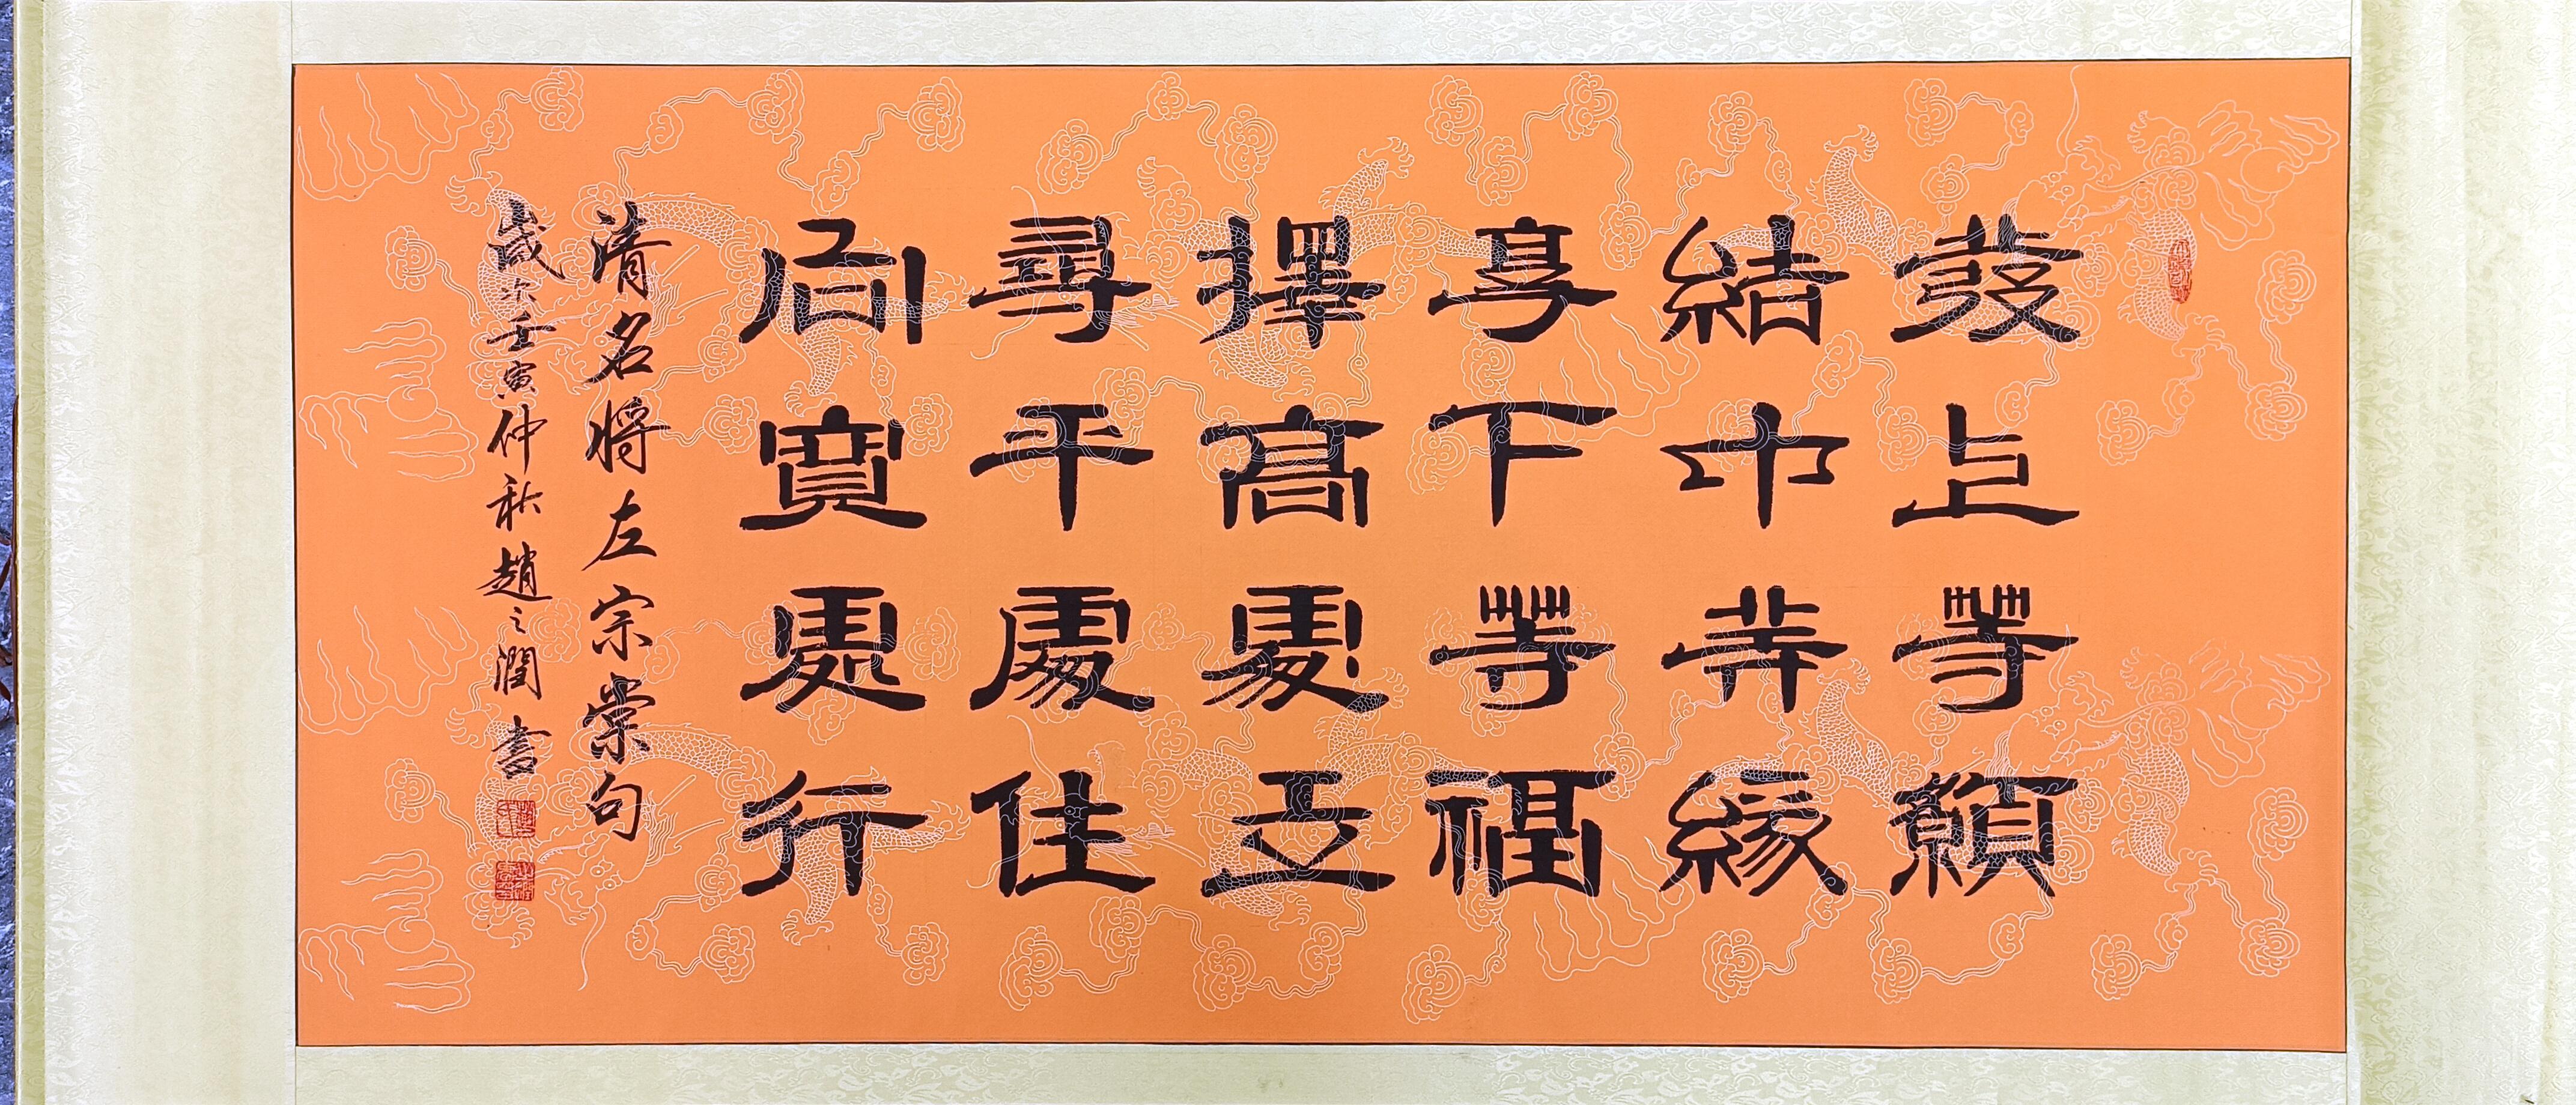 發上等願
結中等緣
享下等福
擇高處立
尋平處住
向寬處行
清名將左宗棠句
歲次壬寅仲秋趙之潤書